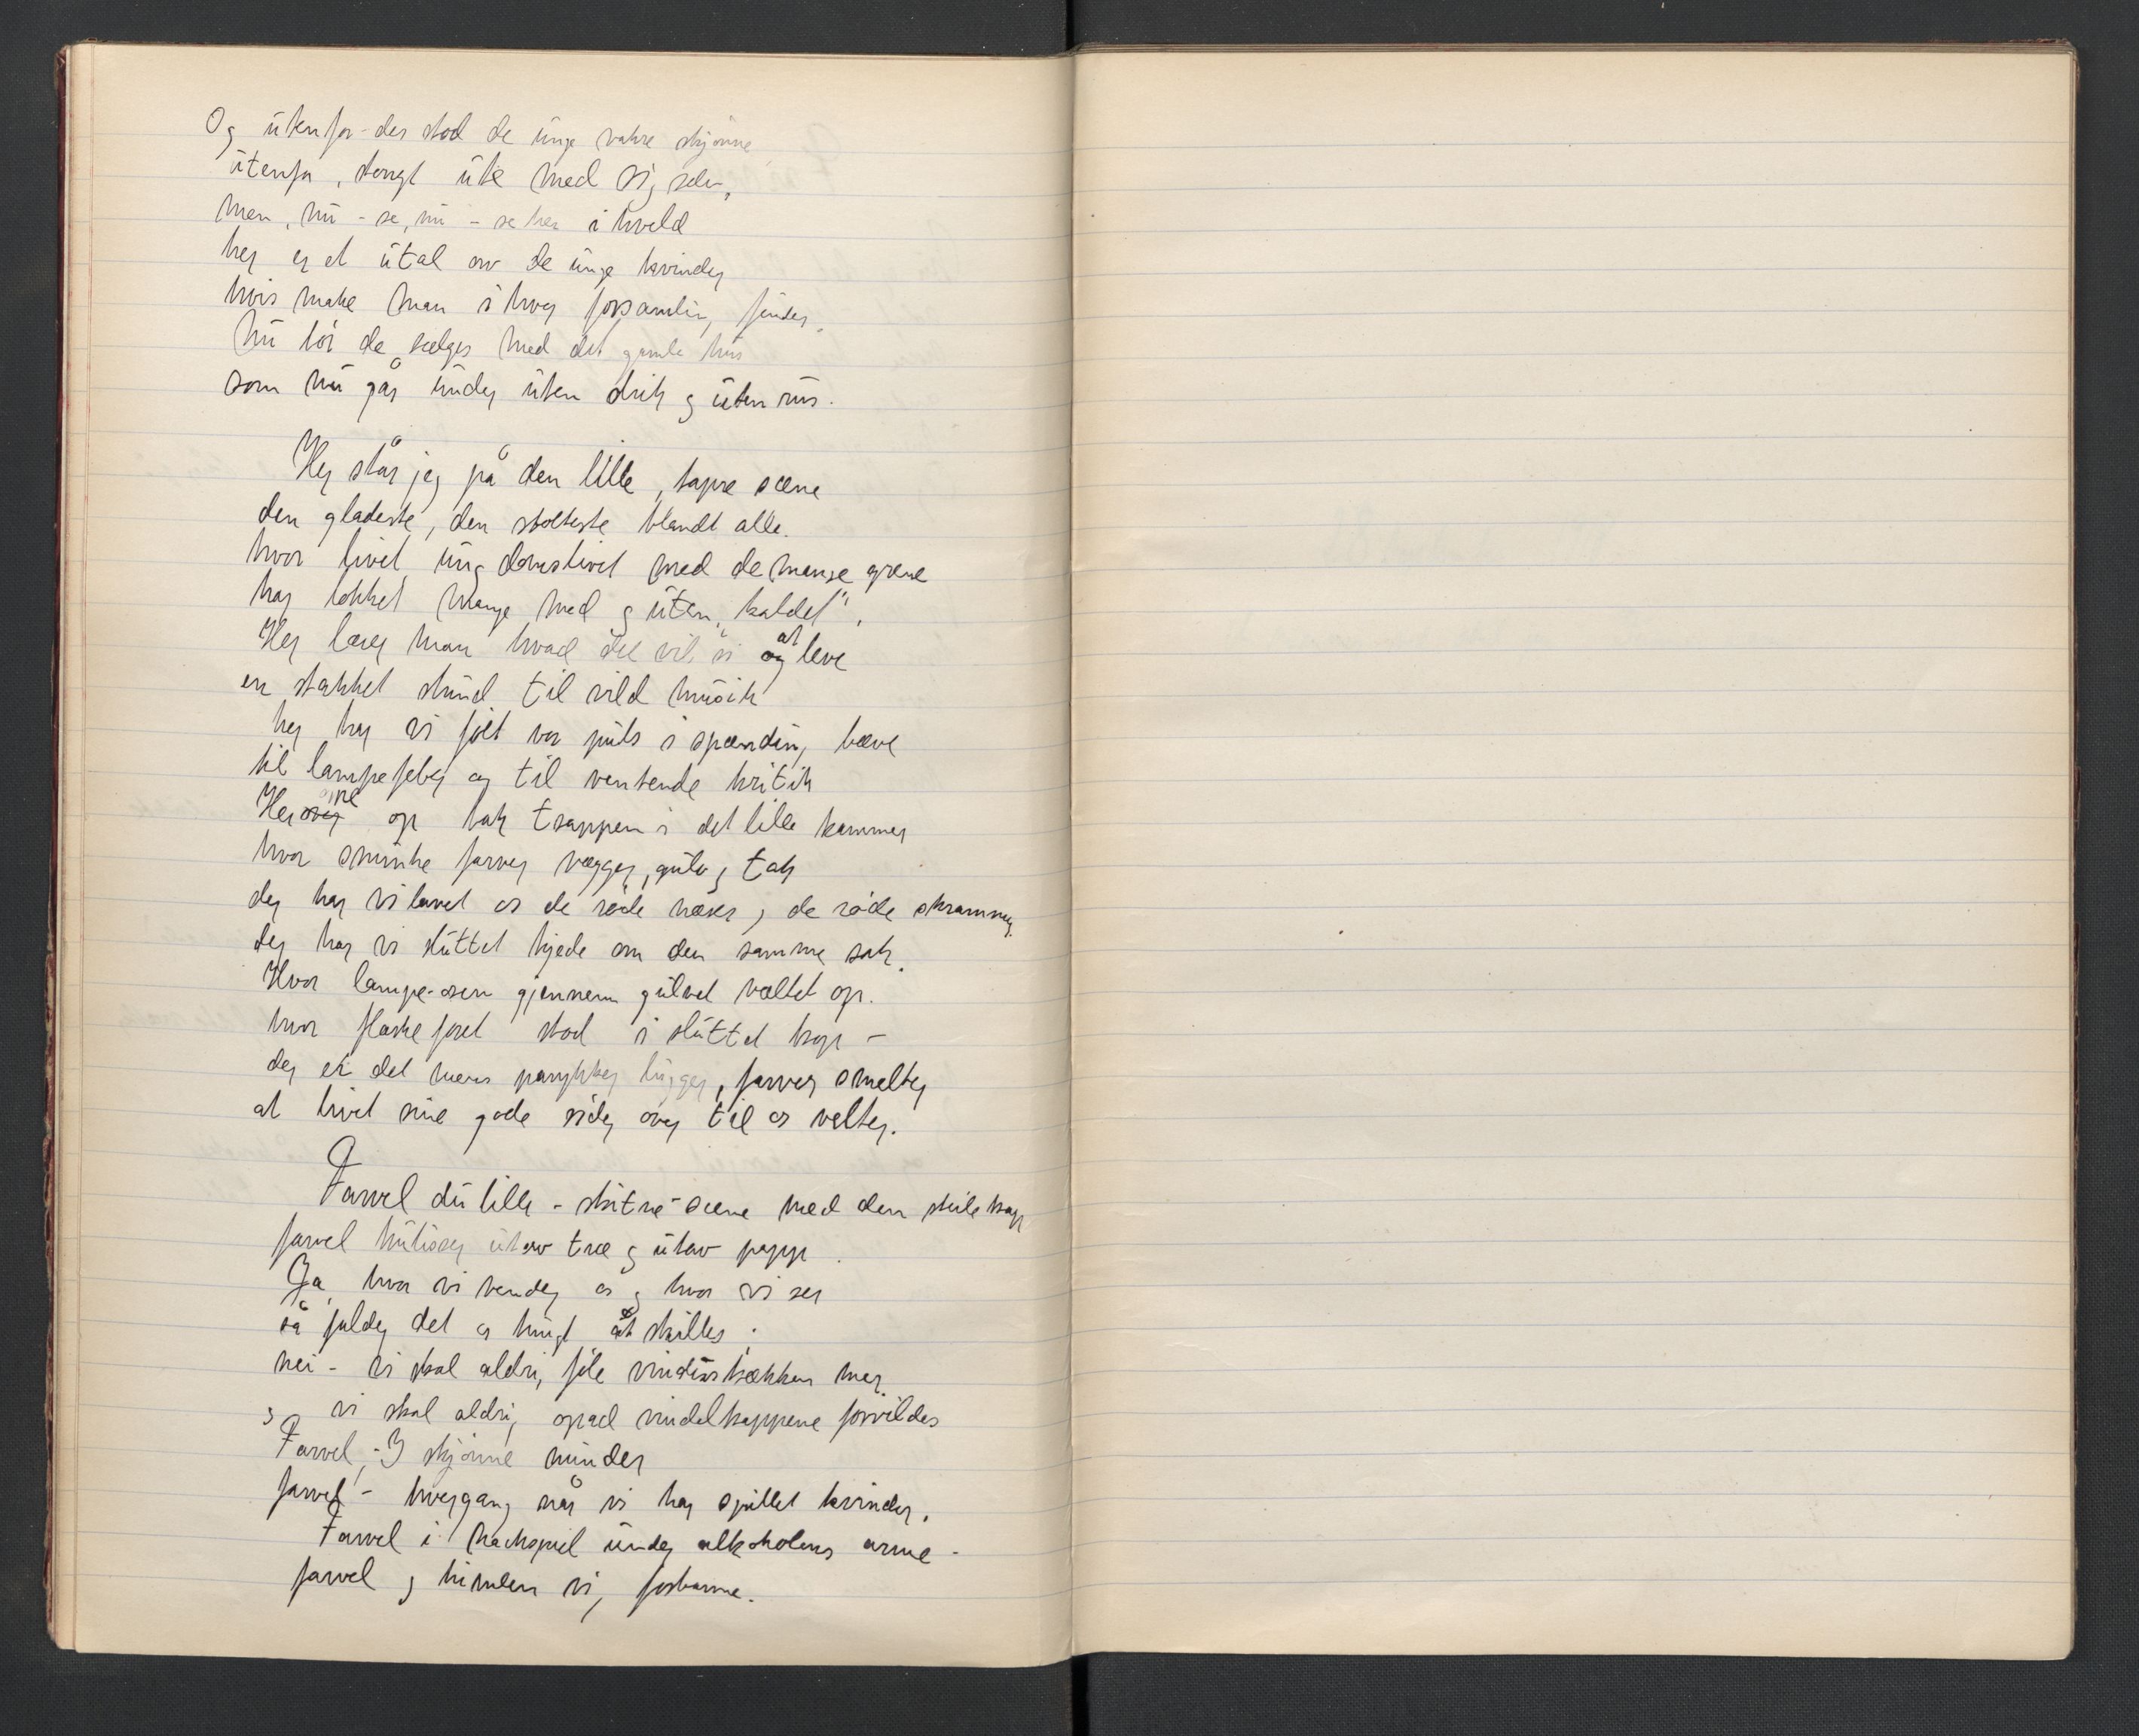 Og utenfor - der stod de unge vakre skjønne
utenfor, stengt ute med sig selv,
men, nu - se, nu - se her i kveld
her er et utal av de unge kvinder
hvis make man i hver forsamling finder.
Nu tør de sælges med det gamle hus
som nu går under uten drik og uten rus.
Her står jeg på den lille, tapre scene
den gladeste, den stolteste blandt alle.
hvor livet ungdomslivet med de mange grene
har lokket mange med og uten "kaldet",
Her lærer man hvad det vil si at leve
en stakket stund til vild musik
her har vi følt vor puls i spænding bæve
til lampefeber og til ventende kritik
Her oppe op bak trappen i det lille kammer
hvor sminke farver vægger, gulv og tak
der har vi lavet os de røde næser, de røde skrammer,
der har vi sluttet kjede om den samme sak.
Hvor lampe-osen gjennem gulvet væltet op.
hvor flaskeforet stod i sluttet trop -
der er det mens parykker ligger, farver smelter
at livet sine gode sider over til os velter.
Farvel du lille - skitne - scene med den steile trapp
farvel kulisser utav træ og utav papp.
Ja, hvor vi vender os og hvor vi ser
så falder det os tungt at skilles;
nei - vi skal aldrig føle vindustrækken mer.
og vi skal aldrig opad vindeltrappene forvildes
Farvel, - I skjønne minder
farvel - hvergang når vi har spillet kvinder.
Farvel i nachspiel under alkoholens arme -
farvel og himlen sig forbarme.